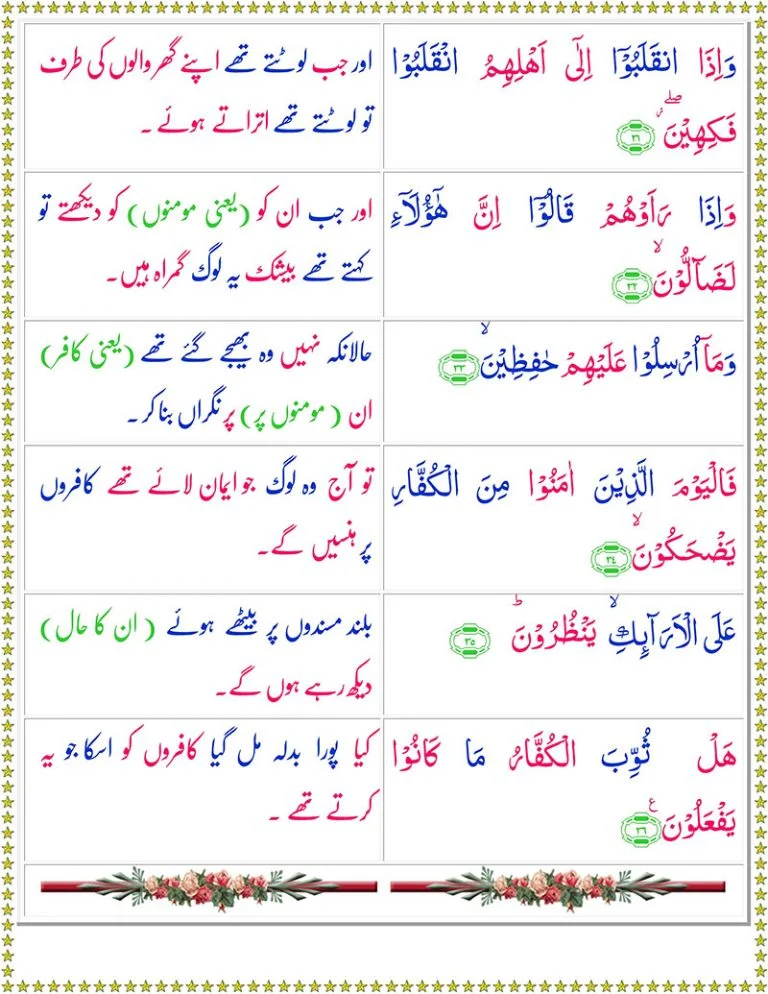 وَاِذَا انْقَلَبُوْۤا اِلٰٓى اَهْلِهِمُ انْقَلَبُوْا
فَكِهِيْنَ ۖۗ ﴿۳۱﴾
اور جب لوٹتے تھے اپنے گھر والوں کی طرف
تو لوٹتے تھے اتراتے ہوئے ۔
وَاِذَا رَاَوْهُمْ قَالُوْۤا اِنَّ هٰۤؤُلَآءِ
لَضَآلُّوْنَ ۙ ﴿۳۲﴾
اور جب ان کو (یعنی مومنوں) کو دیکھتے تو
کہتے تھے بیشک یہ لوگ گمراہ ہیں۔
وَمَاۤ اُرْسِلُوْا عَلَيْهِمْ حٰفِظِيْنَ ۙ ﴿۳۳﴾
حالانکہ نہیں وہ بھیجے گئے تھے (یعنی کافر)
ان (مومنوں پر) پر نگراں بنا کر ۔
فَالْيَوْمَ الَّذِيْنَ اٰمَنُوْا مِنَ الْكُفَّارِ
يَضْحَكُوْنَ ۙ ﴿۳۴﴾
تو آج وہ لوگ جو ایمان لائے تھے کافروں
پر ہنسیں گے۔
عَلَى الْاَرَآئِكِ ۙ يَنْظُرُوْنَ ؕ ﴿۳۵﴾
بلند مسندوں پر بیٹھے ہوئے (ان کا حال)
دیکھ رہے ہوں گے۔
هَلْ ثُوِّبَ الْكُفَّارُ مَا كَانُوْا
يَفْعَلُوْنَ ؑ ﴿۳۶﴾
کیا پورا بدلہ مل گیا کافروں کو اسکا جو یہ
کرتے تھے ۔